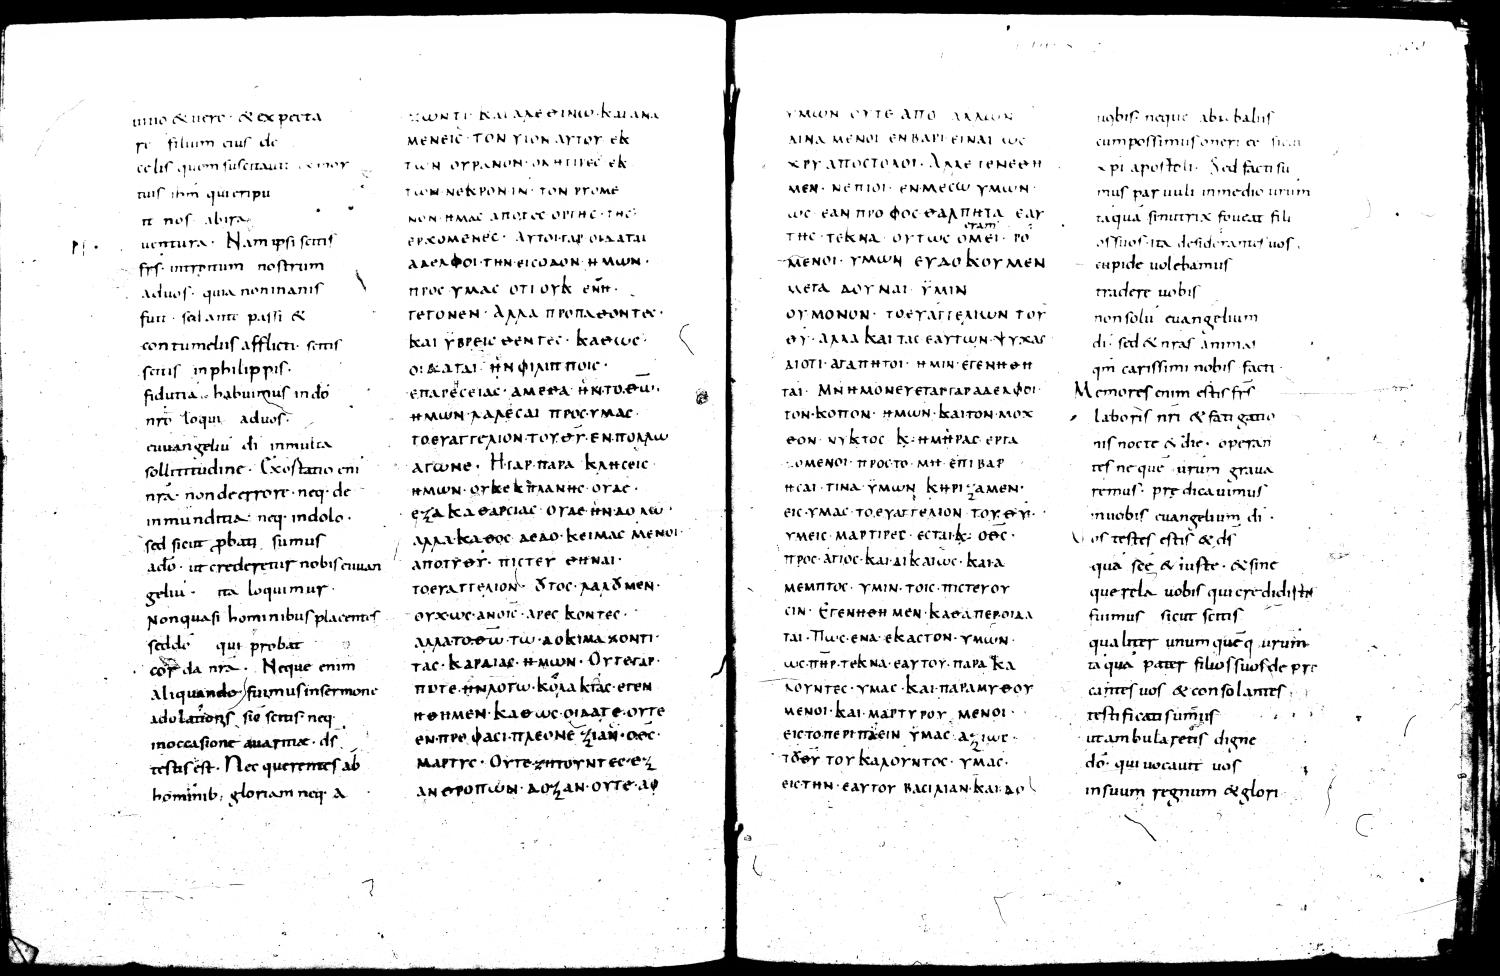 uiuo & uero · & expecta
re filium eius de
celis quem suscitauit
tuis ihm qui eripu
it nos abira
uentura · Nam ipsi scitis
frs · introitum nostrum
aduos · quia non inanis
fuit · sed ante passi &
contumeliis afflicti · scitis
scitis inphilippis ·
fidutia · habuimus indo
nro loqui aduos ·
euuangeliu di inmulta
sollicitudine · Exortatio eni
nra · non deerrore · neq · de
inmunditia · neq · indolo ·
sed sicut probati sumus
ado · ut crederetur nobis euuan
geliu · ita loquimur ·
Nonquasi hominibus placentes
seddo qui probat
corda nra · Neque enim
aliquando fuimus insermone
adulationis sic scitis neq ·
inoccasione auaritiae · ds
testis est · Nec querentes ab
hominib · gloriam neq · a
ΖΩΝΤΙ · ΚΑΙ ΑΛΕΘΙΝΩ · ΚΑΙ ΑΝΑ
ΜΕΝΕΙΣ · ΤΟΝ ΥΙΟΝ ΑΥΤΟΥ ΕΚ
ΤΩΝ ΟΥΡΑΝΟΝ · ΟΝ ΗΓΙΡΕΣ ΕΚ
ΤΩΝ · ΝΕΚΡΟΝ ΙΝ · ΤΟΝ ΡΥΟΜΕ
ΝΟΝ · ΗΜΑΣ ΑΠΟ ΤΟΣ ΟΡΓΗΣ · ΤΗΣ
ΕΡΧΟΜΕΝΕΣ · ΑΥΤΟΙ · ΓΑΡ · ΟΙΔΑΤΑΙ
ΑΔΕΛΦΟΙ · ΤΗΝ · ΕΙΣΟΔΟΝ · ΗΜΩΝ ·
ΠΡΟΣ ΥΜΑΣ ΟΤΙ ΟΥΚ ΕΝΗ ·
ΓΕΓΟΝΕΝ · ΑΛΛΑ ΠΡΟΠΑΘΟΝΤΕΣ ·
ΚΑΙ ΫΒΡΕΙΣΘΕΝΤΕΣ · ΚΑΘΩΣ ·
ΟΙΔΑΤΑΙ · ΗΝ ΦΙΛΙΠΠΟΙΣ ·
ΕΠΑΡΕΣΕΙΑΣ · ΑΜΕΘΑ · ΗΝ · ΤΟ · ΘΩ
ΗΜΩΝ · ΛΑΛΕΣΑΙ ΠΡΟΣ · ΥΜΑΣ ·
ΤΟ ΕΥΑΓΓΕΛΙΟΝ · ΤΟΥ · ΘΥ · ΕΝ · ΠΟΛΛΩ
ΑΓΩΝΕ · Η ΓΑΡ · ΠΑΡΑ ΚΛΗΣΕΙΣ ·
ΗΜΩΝ · ΟΥΚ ΕΚ ΠΛΑΝΗΣ · ΟΥΔΕ ·
ΕΞΑ ΚΑΘΑΡΣΙΑΣ · ΟΥΔΕ · ΗΝ · ΔΟΛΩ
ΑΛΛΑ · ΚΑΘΟΣ · ΔΕΔΟ · ΚΕΙΜΑΣ ΜΕΝΟΙ ·
ΑΠΟ ΤΥ ΘΥ · ΠΙΣΤΕΥ ΘΗΝΑΙ ·
ΤΟ ΕΥΑΓΓΕΛΙΟΝ · ΟΥΤΟΣ · ΛΑΛΟΥΜΕΝ ·
ΟΥΧ ΩΣ · ΑΝΟΙΣ · ΑΡΕΣ ΚΟΝΤΕΣ ·
ΑΛΛΑ ΤΟ · ΘΩ · ΤΩ · ΔΟΚΙΜΑΖΟΝΤΙ ·
ΤΑΣ · ΚΑΡΔΙΑΣ · ΗΜΩΝ · ΟΥΤΕ ΓΑΡ ·
ΠΟΤΕ · ΗΝ ΛΟΓΩ · ΚΟΛΑΚΙΑΣ · ΕΓΕΝ
ΗΘΗΜΕΝ · ΚΑΘΩΣ · ΟΙΔΑΤΕ · ΟΥΤΕ
ΕΝ · ΠΡΕΦΑΣΙ · ΠΛΕΟΝΕΞΙΑΝ · ΟΘΣ ·
ΜΑΡΤΥΣ · ΟΥΤΕ · ΖΗΤΟΥΝΤΕΣ · ΕΞ
ΑΝΘΡΟΠΩΝ · ΔΟΞΑΝ · ΟΥΤΕ · ΑΦ
ΥΜΩΝ ΟΥΤΕ ΑΠΟ ΑΛΛΩΝ
ΑΙΝΑ ΜΕΝΟΙ ΕΝ ΒΑΡΙ · ΕΙΝΑΙ ΩΣ
ΧΡΥ ΑΠΟΣΤΟΛΟΙ · ΑΛΛΕ ΓΕΝΕΘΗ
ΜΕΝ · ΝΕΠΙΟΙ · ΕΝ · ΜΕΣΩ ΥΜΩΝ ·
ΩΣ · ΕΑΝ ΠΡΟΦΟΣ ΘΑΛΠΗΤΑ ΕΑΥ
ΤΗΣ · ΤΕΚΝΑ · ΟΥΤΩΣ ΟΜΕΙ · ΡΟ
ΜΕΝΟΙ · ΥΜΩΝ ΕΥΔΟΚΟΥΜΕΝ
ΜΕΤΑ ΔΟΥΝΑΙ · ΫΜΙΝ
ΟΥ ΜΟΝΟΝ · ΤΟ ΕΥΑΓΓΕΛΙΩΝ ΤΟΥ
ΘΥ · ΑΛΛΑ ΚΑΙ ΤΑΣ ΕΑΥΤΩΝ · ΨΥΧΑΣ
ΔΙΟΤΙ · ΑΓΑΠΗΤΟΙ · ΗΜΙΝ · ΕΓΕΝΗΘΗ
ΤΑΙ · ΜΝΗΜΟΝΕΥΕΤΑΙ ΓΑΡ ΑΔΕΛΦΟΙ ·
ΤΟΝ · ΚΟΠΟΝ · ΗΜΩΝ · ΚΑΙ ΤΟΝ · ΜΟΧ
ΘΟΝ · ΝΥΚΤΟΣ Κ · ΗΜΗΡΑΣ · ΕΡΓΑ
ΖΟΜΕΝΟΙ · ΠΡΟΣ ΤΟ · ΜΗ · ΕΠΙ ΒΑΡ
ΗΣΑΙ · ΤΙΝΑ · ΫΜΩΝ ΚΗΡΙΞΑΜΕΝ ·
ΕΙΣ · ΥΜΑΣ · ΤΟ ΕΥΑΓΓΕΛΙΟΝ · ΤΟΥ · ΘΥ ·
ΥΜΕΙΣ · ΜΑΡΤΙΡΕΣ · ΕΣΤΑΙ Κ · ΟΘΣ ·
ΠΡΟΣ · ΑΓΙΟΣ · ΚΑΙ · ΔΙΚΑΙΩΣ · ΚΑΙ · Α
ΜΕΜΠΤΟΣ · ΥΜΙΝ · ΤΟΙΣ · ΠΙΣΤΕΥΟΥ
ΣΙΝ · ΕΓΕΝΗΘΗΜΕΝ · ΚΑΘΑΠΕΡ ΟΙΔΑ
ΤΑΙ · ΠΩΣ · ΕΝΑ · ΕΚΑΣΤΟΝ · ΥΜΩΝ ·
ΩΣ · ΠΗΡ · ΤΕΚΝΑ · ΕΑΥΤΟΥ · ΠΑΡΑ ΚΑ
ΛΟΥΝΤΕΣ · ΥΜΑΣ · ΚΑΙ · ΠΑΡΑΜΥΘΟΥ
ΜΕΝΟΙ · ΚΑΙ · ΜΑΡΤΥΡΟΥ ΜΕΝΟΙ ·
ΕΙΣ ΤΟ ΠΕΡΙΠΑΕΙΝ ΫΜΑΣ · ΑΞΙΩΣ ·
ΤΟΥ ΘΥ ΤΟΥ ΚΑΛΟΥΝΤΟΣ · ΥΜΑΣ ·
ΕΙΣ ΤΗΝ · ΕΑΥΤΟΥ ΒΑΣΙΛΙΑΝ · ΚΑΙ · ΔΟ
uobis · neque abaliis
cumpossimus oneri ee sicut
xpi apostoli · Sed facti su
mus paruuli inmedio urum
taqua sinutrix foueat fili
ossuos · ita desiderantes uos ·
cupide uolebamus
tradere uobis
nonsolu euangelium
di · sed & nras animas
qm carissimi nobis facti ·
Memores enim estis frs
laboris nri & fatigatio
nis nocte & die · operan
tes neque urum graua
remus · predicauimus
inuobis euangelium di ·
os testes estis & ds
qua sce & iuste · & sine
querela uobis qui credidistis
fuimus sicut scitis
qualiter unum queq urum
taqua pater filios suos depre
cantes uos & consolantes
testificati sumus
ut ambularetis digne
do · qui uocauit uos
insuum regnum & glori